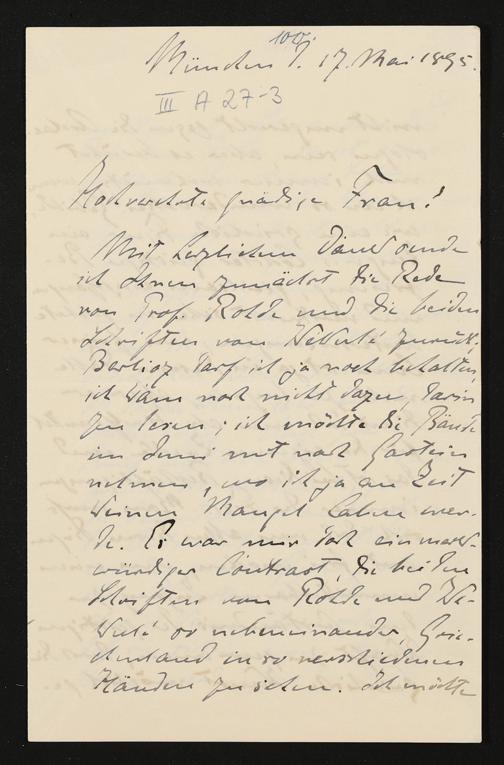 100.
München J. 17. Mai 1895.
III A 27-3
Hochverehrte gnädige Frau!
Mit herzlichem Dank sende
ich Ihnen zunächst die Rede
von Prof. Rohde und die beiden
Schriften von Kekulé zurück;
Berlioz darf ich ja noch behalten,
ich kam noch nicht dazu, darin
zu lesen; ich möchte die Bände
im Juni mit nach Gastein
nehmen, wo ich ja an Zeit
keinen Mangel haben wer-
de. Es war mir doch ein merk-
würdiger Contrast, die beiden
Schriften von Rohde und Ke-
kulé so nebeneinander, Grie-
chenland in so verschiedenen
Händen zu sehen. Ich möchte